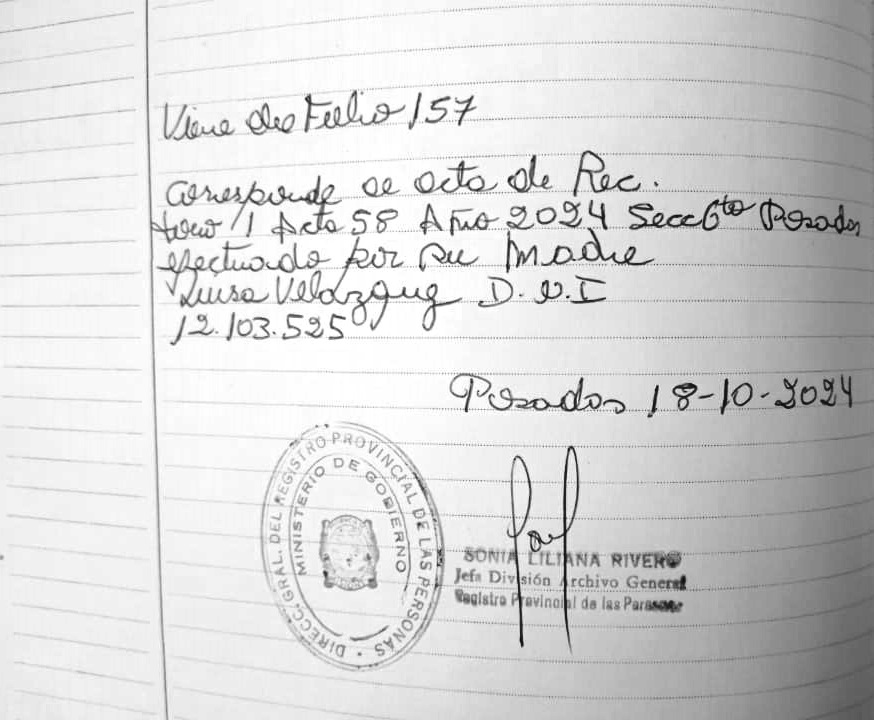 Viene del Folio 157
Corresponde al acta de Rec.
tomo 1 Acta 58 Año 2024 Secc 6ta Posadas
efectuado por su madre
Luisa Velázquez D.N.I
12.103.525
Posadas 18-10-2024
DIRECC. GRAL. DEL REGISTRO PROVINCIAL DE LAS PERSONAS
MINISTERIO DE GOBIERNO
SONIA LILIANA RIVERO
Jefa División Archivo General
Registro Provincial de las Personas